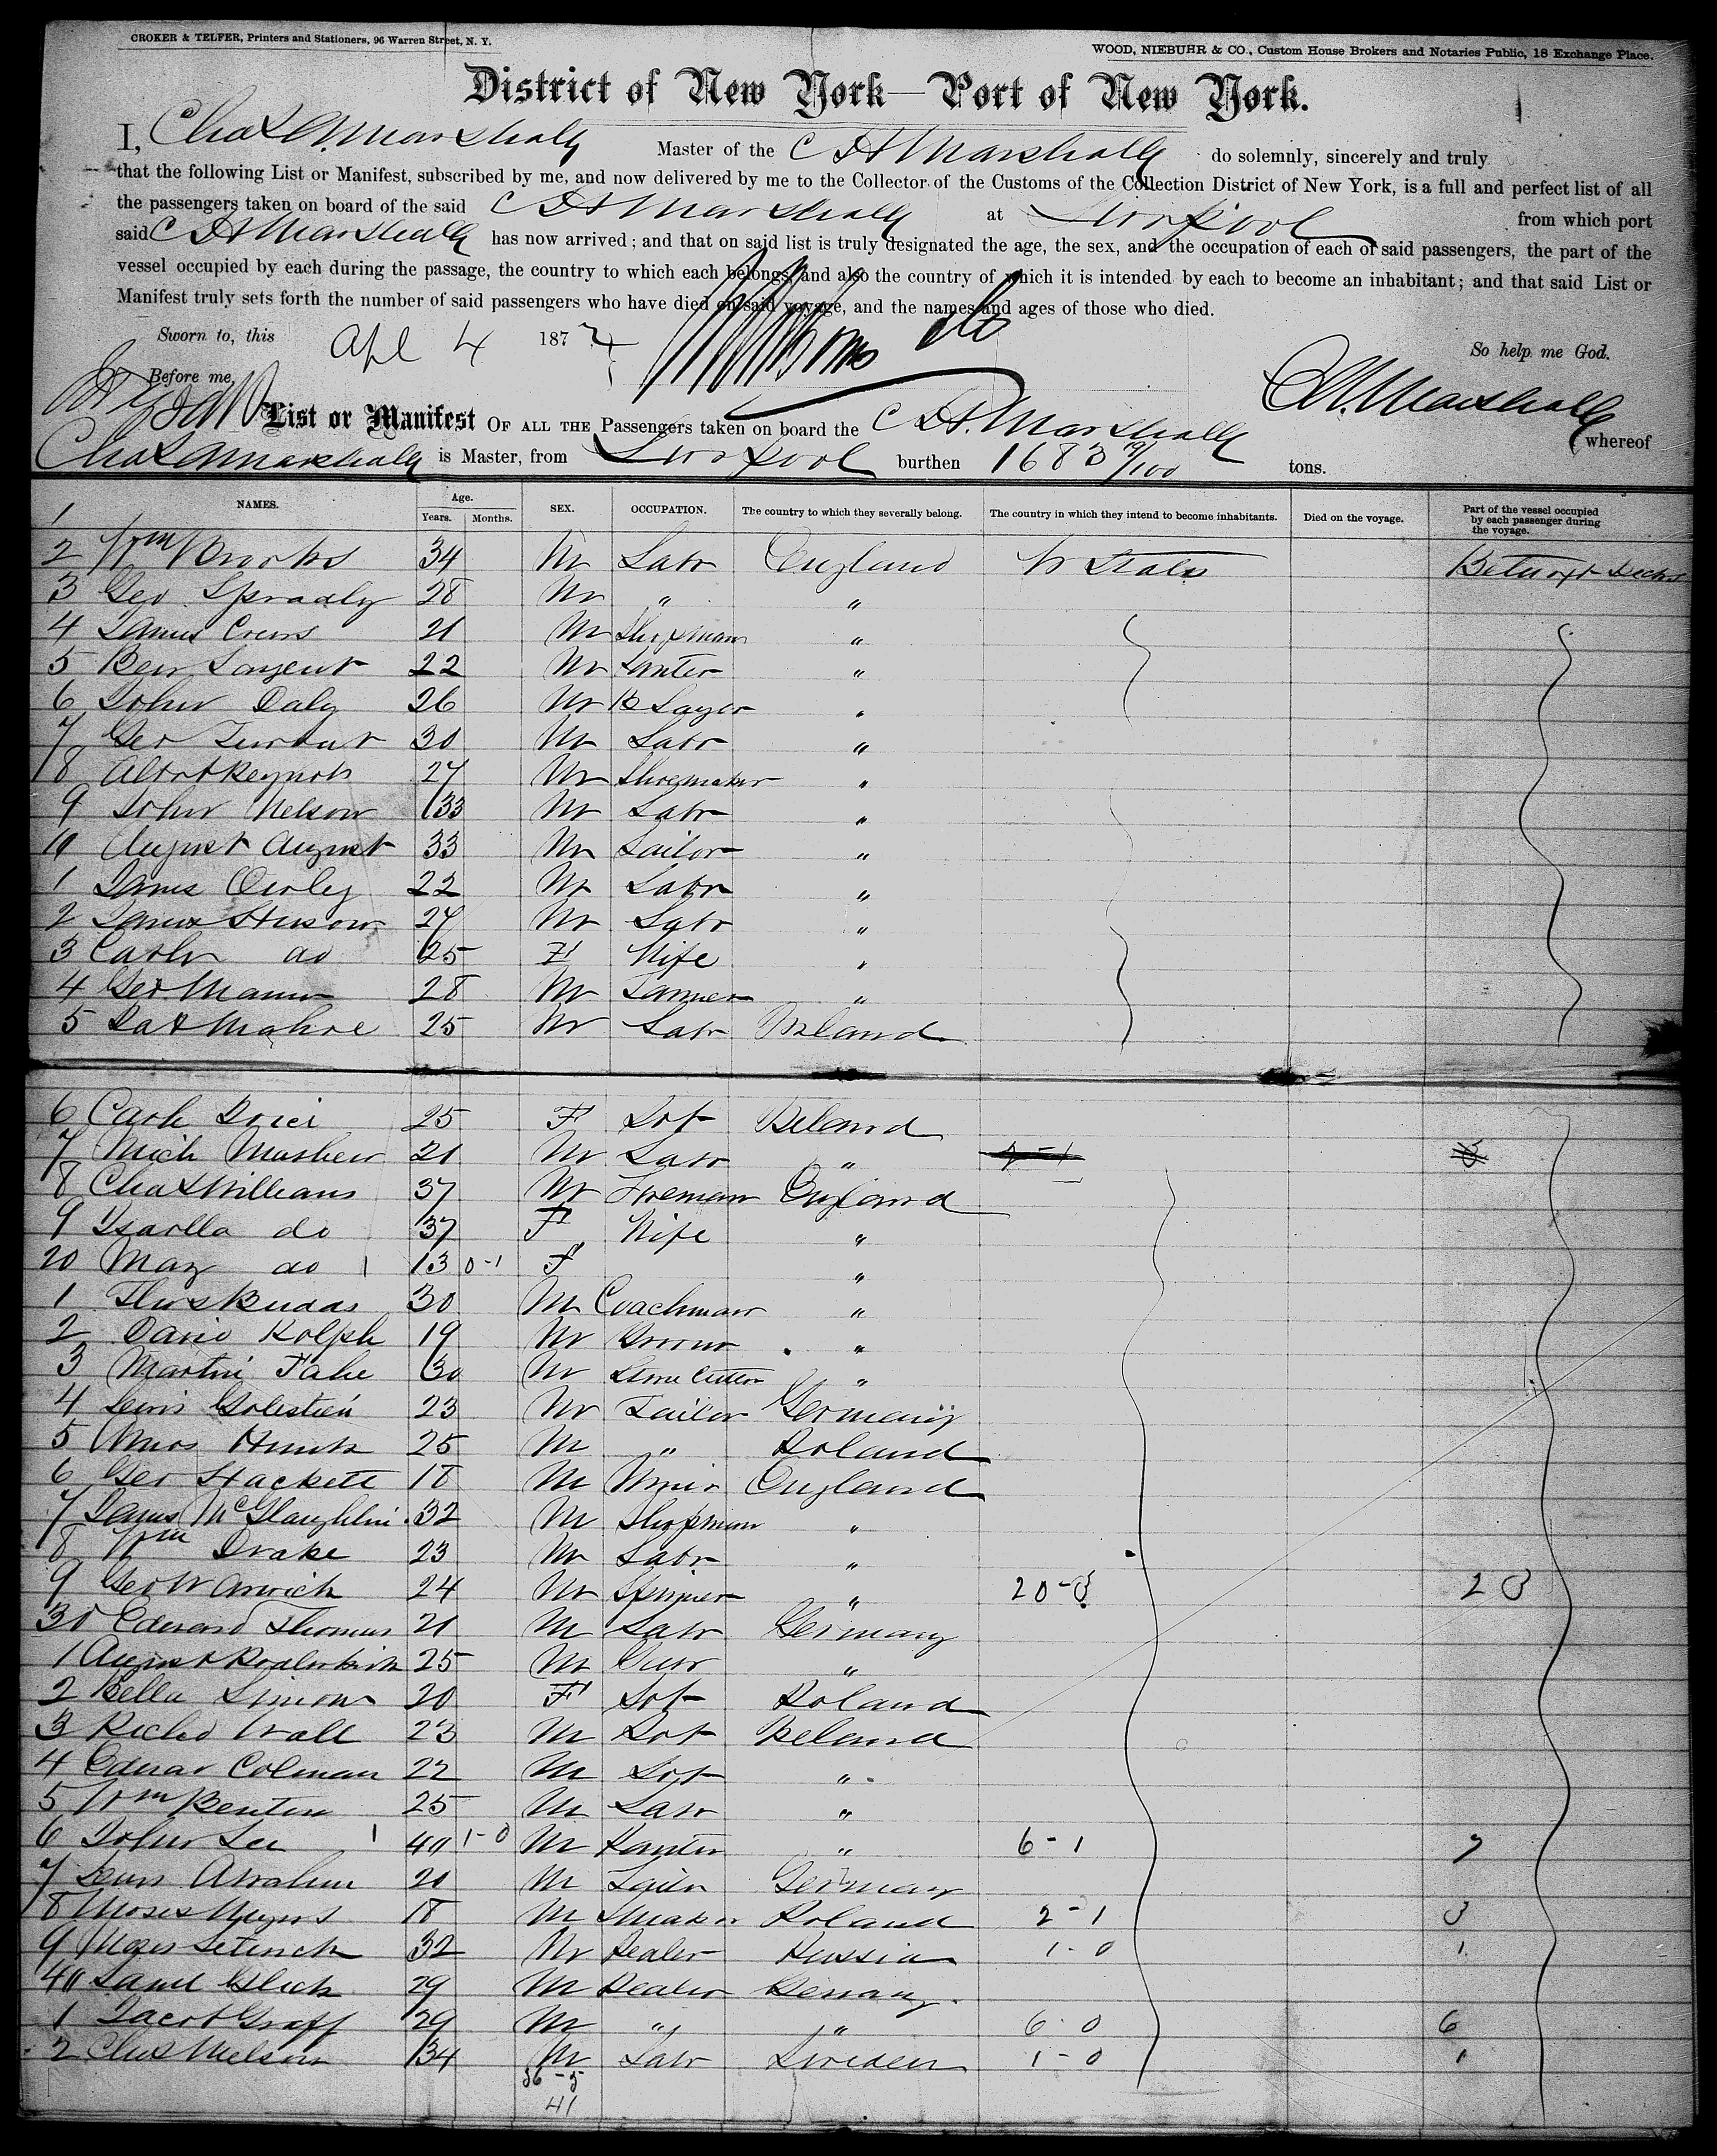 CROKER & TELFER, Printers and Stationers, 96 Warren Street, N. Y.
WOOD, NIEBUHR & CO., Custom House Brokers and Notaries Public, 18 Exchange Place.
District of New York—Port of New York.
I, Chas A. Marshall Master of the C H Marshall do solemnly, sincerely and truly
that the following List or Manifest, subscribed by me, and now delivered by me to the Collector of the Customs of the Collection District of New York, is a full and perfect list of all
the passengers taken on board of the said C H Marshall at Liverpool from which port
said C H Marshall has now arrived; and that on said list is truly designated the age, the sex, and the occupation of each of said passengers, the part of the
vessel occupied by each during the passage, the country to which each belongs, and also the country of which it is intended by each to become an inhabitant; and that said List or
Manifest truly sets forth the number of said passengers who have died on said voyage, and the names and ages of those who died.
Sworn to, this Apl 4 187
So help me God.
Before me,
Marshall
List or Manifest OF ALL THE Passengers taken on board the C H. Marshall whereof
Chas A Marshall is Master, from Liverpool burthen 1683 /100 tons.
NAMES. Age. Years. Months. SEX. OCCUPATION. The country to which they severally belong. The country in which they intend to become inhabitants. Died on the voyage. Part of the vessel occupied by each passenger during the voyage.
1
2 Wm Brooks 34 M Labr England U States Betwixt Decks
3 Geo Spradly 28 M " "
4 James Crews 21 M Shopman "
5 Ben Sargent 22 M "
6 John Daly 26 M B Layer "
7 Geo 30 M Labr "
8 Albert Reynols 27 M Shoemaker "
9 John Nelson 33 M Labr "
10 August August 33 M Sailor "
1 James 22 M Labr "
2 James 27 M Labr "
3 Cathn do 25 F Wife "
4 Geo Mann 28 M "
5 Pat 25 M Labr Ireland
6 Cath 25 F Ireland
7 Mich 21 M Labr "
8 Chas Williams 37 M Foreman England
9 Isarlla do 37 F Wife "
20 May do 1 13 0-1 F "
1 Thos 30 M Coachman "
2 David Rolph 19 M Groom "
3 Martin 30 M Stone Cutter "
4 Lewis 23 M Tailor Germany
5 25 M " Poland
6 Geo Hackett 18 M England
7 James McGlaughlin 32 M Shopman "
8 Wm Drake 23 M Labr "
9 Geo Warwick 24 M Spinner " 20-3 23
30 Edward Thomas 21 M Labr Germany
1 August 25 M "
2 Bella Simons 20 F Poland
3 Richd Wall 23 M Ireland
4 Edward Colman 22 M "
5 Wm Benton 25 M Labr "
6 John Lee 1 40 1-0 M " 6-1 7
7 Lewis Abrahm 20 M Tailr Germany
8 Moses Meyers 18 M Poland 2-1 3
9 32 M Dealer Russia 1-0 1
40 Saml 29 M Dealer
1 Jacob Graff 29 M " " 6-0 6
2 Chas Nelson 34 M Labr Sweden 1-0 1
36-5
41